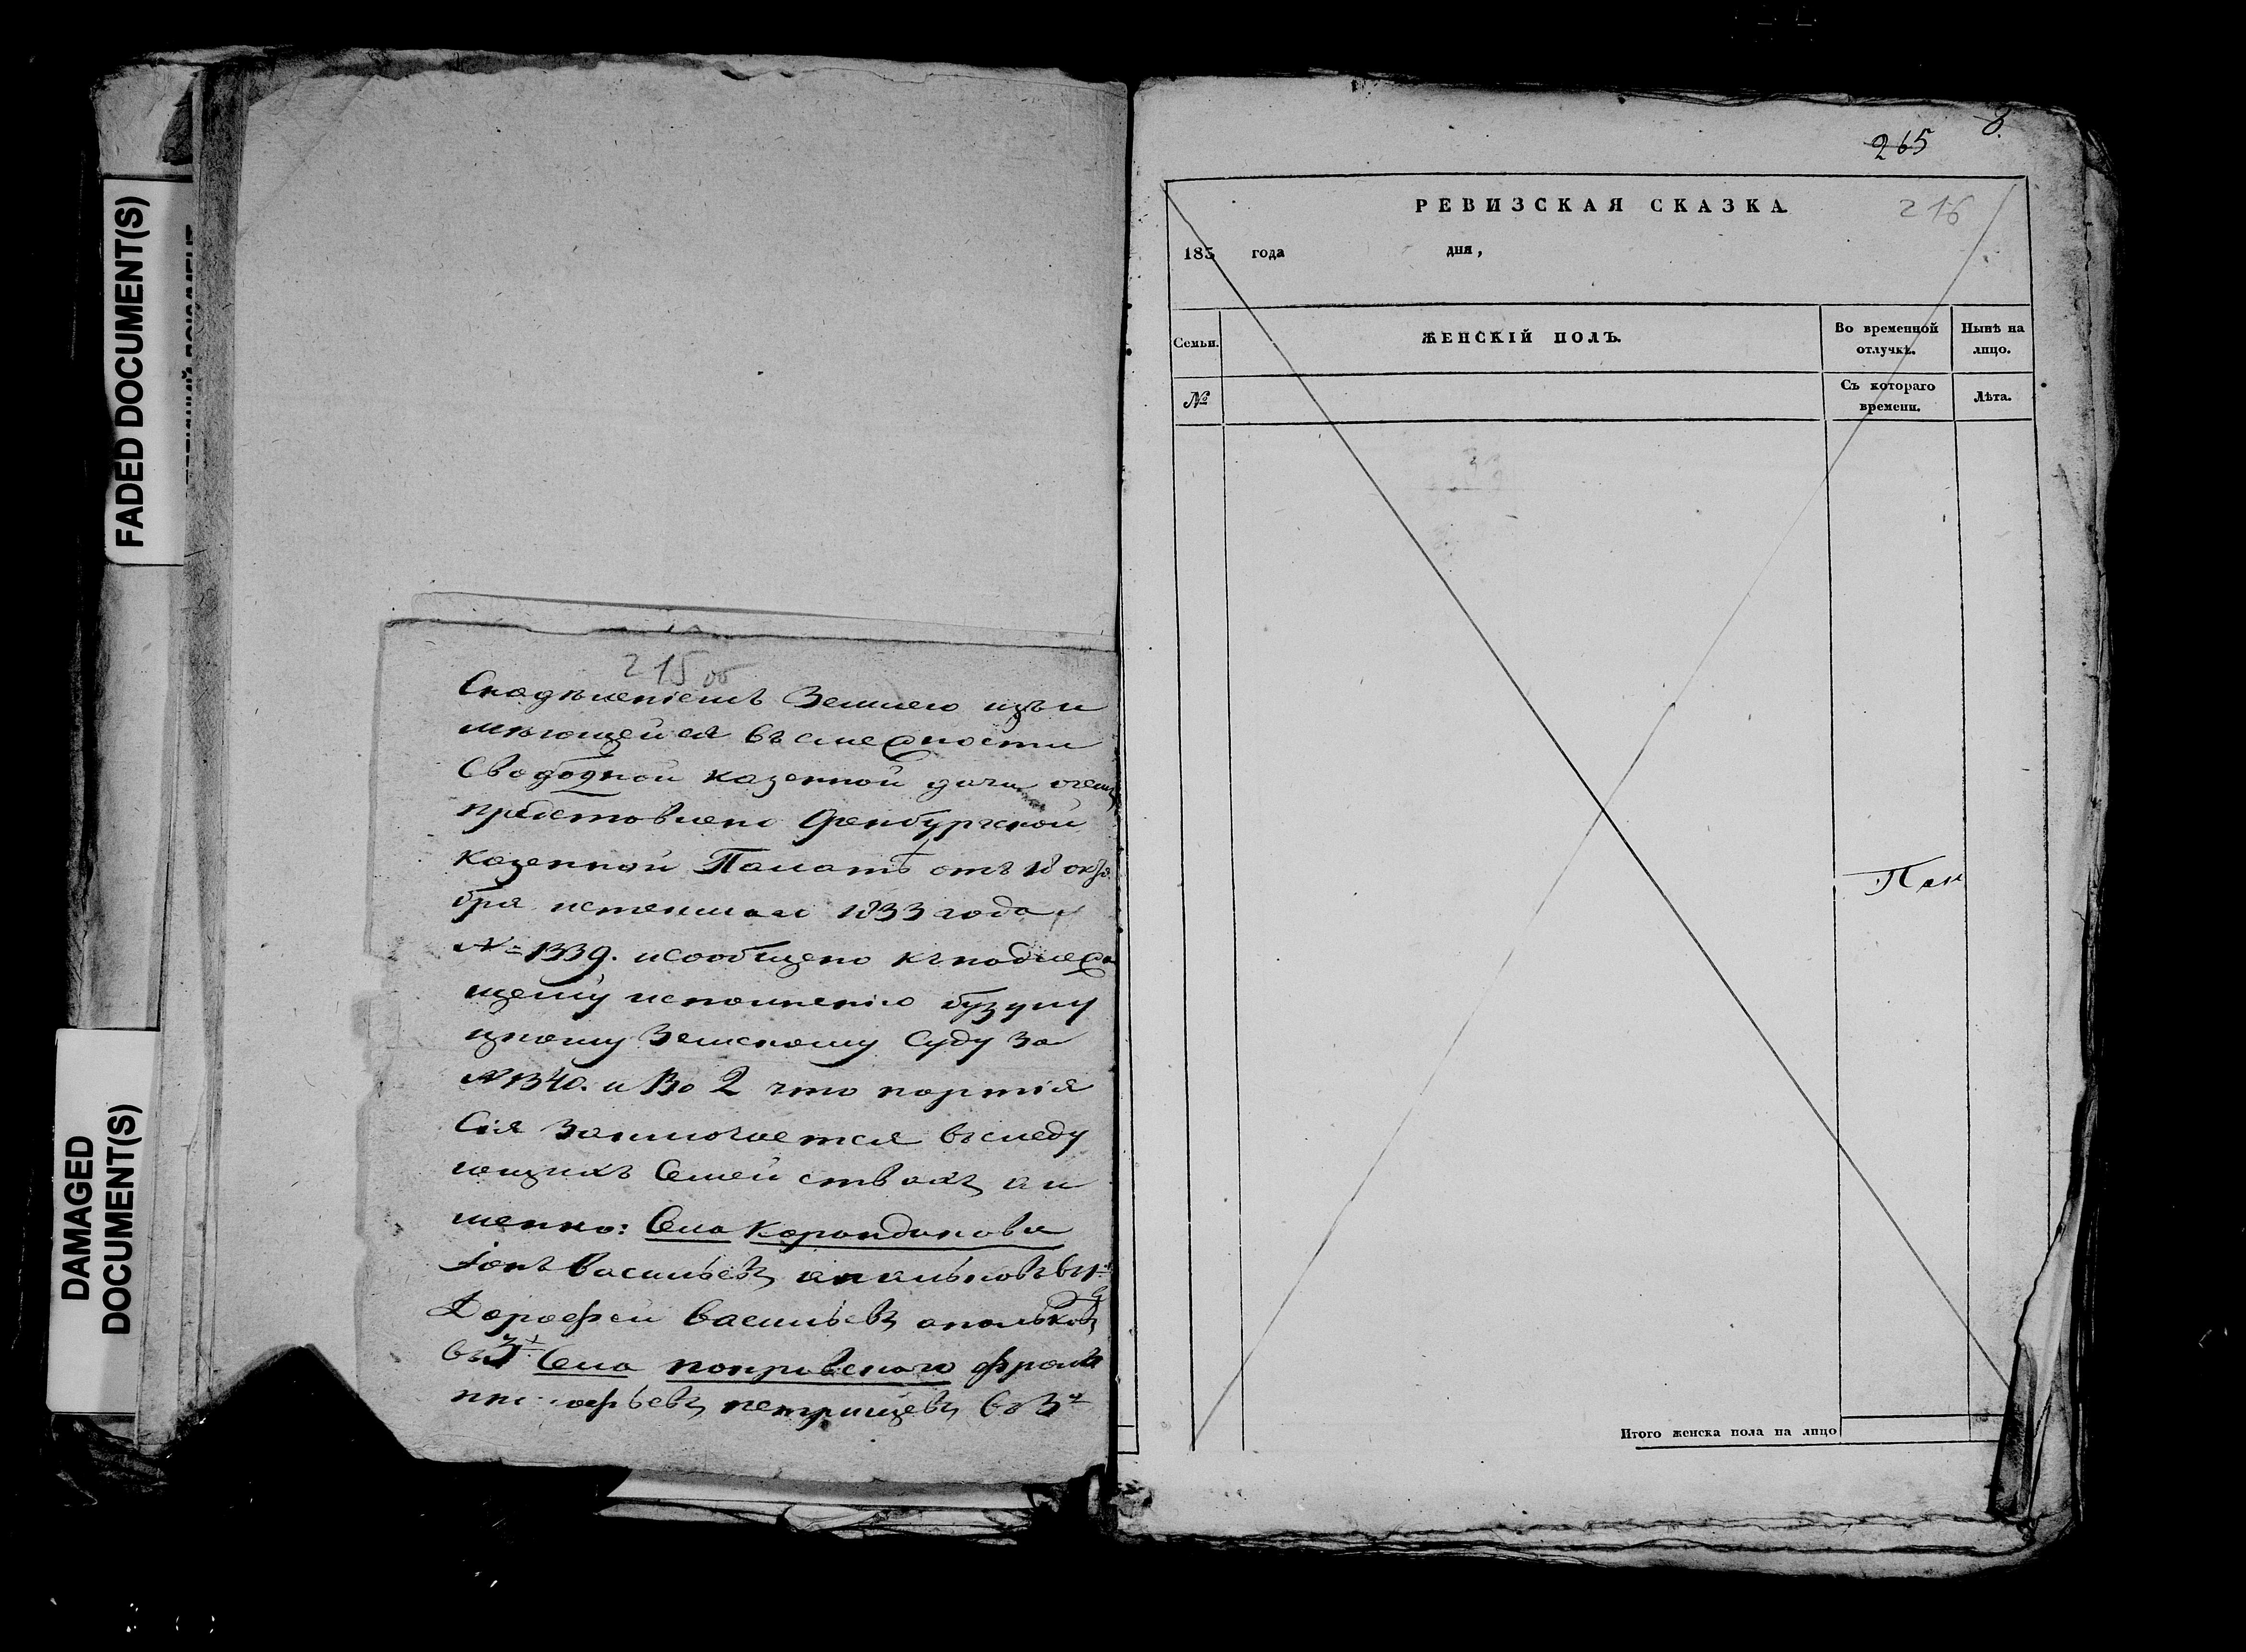 FADED DOCUMENT(S)
DAMAGED
DOCUMENT(S)
215 об
Снаделеніемъ Землею изъ и
меющейся въ смежности
Свободной казенной дачи очемъ
представлено Оренбургской
казенной Палатѣ отъ 18 октя
бря истекшаго 1833 года
№ 1339. исообщено кънадлежа
щему исполненію бузулу
цкому Земскому Суду За
№ 1340. и Во 2 что партія
Сія Заключается въследу
ющихъ Семействахъ аи
менно: Села Карандакова
Іонъ Васильевъ апальковъ
Дорофей Васильевъ апальковъ
Села покровскаго
петрищевъ
265
8.
216
РЕВИЗСКАЯ СКАЗКА
185 года дня,
Семьи.
ЖЕНСКІЙ ПОЛЪ.
Во временной отлучкѣ.
Нынѣ на лицо.
№
Съ котораго времени.
Лѣта.
Пал
Итого женска пола на лицо